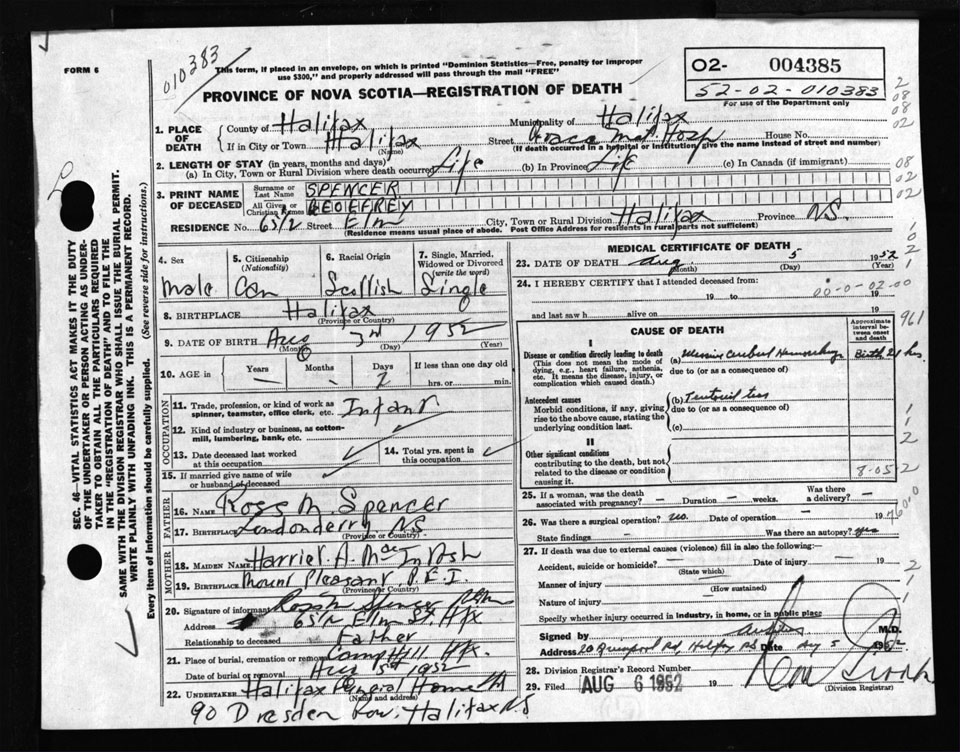 FORM 6
010383
This form, if placed in an envelope, on which is printed "Dominion Statistics—Free, penalty for improper
use $300," and properly addressed will pass through the mail "FREE"
O2- 004385
52-02-010383
For use of the Department only
PROVINCE OF NOVA SCOTIA—REGISTRATION OF DEATH
1. PLACE OF DEATH
County of Halifax Municipality of Halifax
If in City or Town Halifax Street Grace Mat. Hosp House No.
(Name) (If death occurred in a hospital or institution, give the name instead of street and number)
2. LENGTH OF STAY (in years, months and days)
(a) In City, Town or Rural Division where death occurred Life (b) In Province Life (c) In Canada (if immigrant)
3. PRINT NAME OF DECEASED
Surname or Last Name SPENCER
All Given or Christian Names GEOFFREY
RESIDENCE No. 65½ Street Elm City, Town or Rural Division Halifax Province NS.
(Residence means usual place of abode. Post Office Address for residents in rural parts not sufficient)
4. Sex Male
5. Citizenship (Nationality) Can
6. Racial Origin Scottish
7. Single, Married, Widowed or Divorced (write the word) Single
8. BIRTHPLACE Halifax
(Province or Country)
9. DATE OF BIRTH Aug 3rd 1952
(Month) (Day) (Year)
10. AGE in Years — Months — Days 2 If less than one day old
hrs. or min.
OCCUPATION
11. Trade, profession, or kind of work as
spinner, teamster, office clerk, etc. Infant
12. Kind of industry or business, as cotton-
mill, lumbering, bank, etc.
13. Date deceased last worked
at this occupation
14. Total yrs. spent in
this occupation
15. If married give name of wife
or husband of deceased
FATHER
16. Name Ross M. Spencer
17. Birthplace Londonderry NS
(Province or Country)
MOTHER
18. MAIDEN NAME Harriet A. Mac
19. BIRTHPLACE Mount Pleasant P.E.I.
(Province or Country)
20. Signature of informant Ross M Spencer
Address 65½ Elm St. Hfx
Relationship to deceased Father
21. Place of burial, cremation or removal Camp Hill Hfx.
Date of burial or removal Aug 5th 1952
22. UNDERTAKER Halifax Funeral Home
(Name and address)
90 Dresden Row. Halifax NS
MEDICAL CERTIFICATE OF DEATH
23. DATE OF DEATH Aug 5 1952
(Month) (Day) (Year)
24. I HEREBY CERTIFY that I attended deceased from:
19 to 19
and last saw h alive on 19
CAUSE OF DEATH
Approximate interval between onset and death
I
Disease or condition directly leading to death
(This does not mean the mode of
dying, e.g., heart failure, asthenia,
etc. It means the disease, injury, or
complication which caused death.)
(a) Massive Cerebral Hemorrhage Birth 24 hrs.
due to (or as a consequence of)
Antecedent causes
Morbid conditions, if any, giving
rise to the above cause, stating the
underlying condition last.
(b) Tentorial tear
due to (or as a consequence of)
(c)
II
Other significant conditions
contributing to the death, but not
related to the disease or condition
causing it.
8-05-2
25. If a woman, was the death
associated with pregnancy? — Duration — weeks. Was there a delivery? —
26. Was there a surgical operation? no. Date of operation — 19
State findings — Was there an autopsy? yes
27. If death was due to external causes (violence) fill in also the following:
Accident, suicide or homicide? Date of injury 19
(State which)
Manner of injury
(How sustained)
Nature of injury
Specify whether injury occurred in industry, in home, or in public place
Signed by M.D.
Address Date Aug 5 1952
28. Division Registrar's Record Number
29. Filed AUG 6 1952 19
(Division Registrar)
SEC. 46—VITAL STATISTICS ACT MAKES IT THE DUTY
OF THE UNDERTAKER OR PERSON ACTING AS UNDER-
TAKER TO OBTAIN ALL THE PARTICULARS REQUIRED
IN THE "REGISTRATION OF DEATH" AND TO FILE THE
SAME WITH THE DIVISION REGISTRAR WHO SHALL ISSUE THE BURIAL PERMIT.
WRITE PLAINLY WITH UNFADING INK. THIS IS A PERMANENT RECORD.
Every item of information should be carefully supplied. (See reverse side for instructions.)